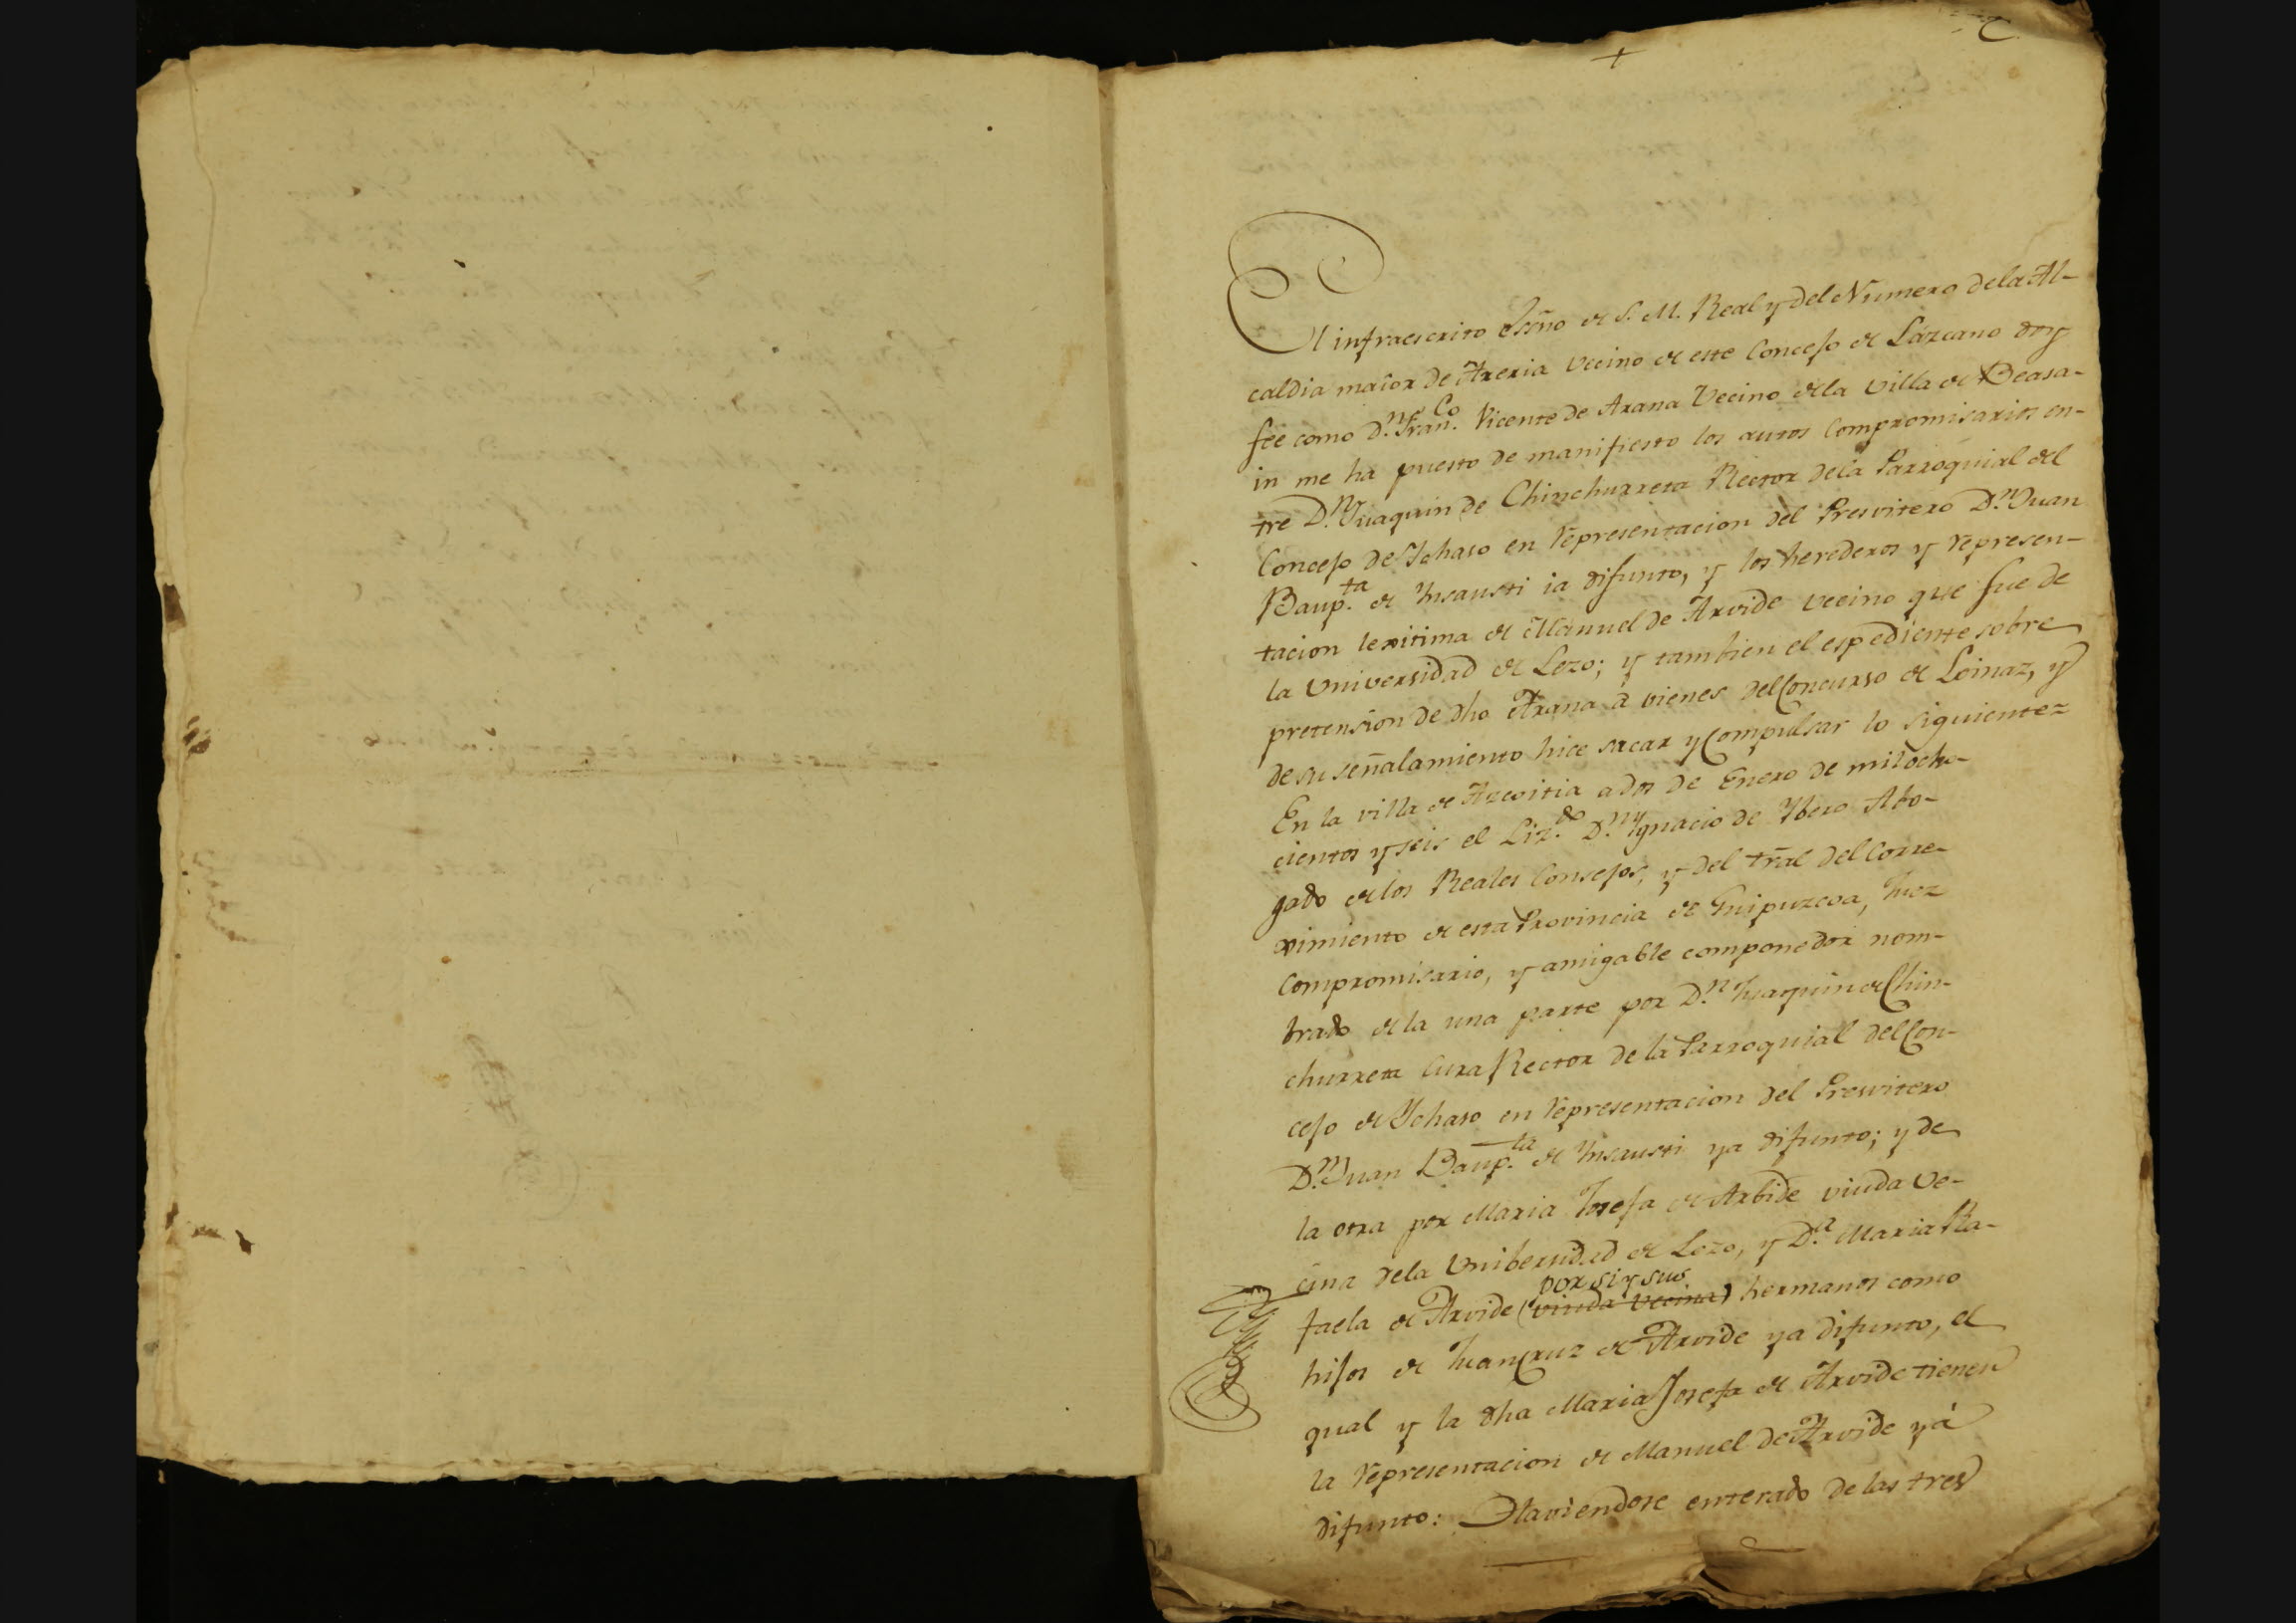 +
El infraescrito Essño de S. M. Real y del Numero dela Al-
caldia maior de Areria vecino de este Concejo de Lazcano doy
fee como D.n Fran.co Vicente de Arana Vecino dela villa de Beasa-
in me ha puesto de manifiesto los autos Compromisarios en-
tre D.n Juaquin de Chinchurreta Rector dela Parroquial del
Concejo de Ichaso en representacion del Presvitero D.n Juan
Baup.ta de Insausti ia difunto, y los herederos y represen-
tacion lexitima de Manuel de Arvide vecino que fue de
la Universidad de Lezo; y tambien el espediente sobre
pretension de dho Arana a vienes del Concurso de Loinaz, y
de su señalamiento hice sacar y Compulsar lo siguiente=
En la villa de Azcoitia a dos de Enero de mil ocho-
cientos y seis el Liz.do D.n Ygnacio de Ybero Abo-
gado de los Reales Consejos, y del trãl del Corre-
ximiento de esta Provincia de Guipuzcoa, Juez
Compromisario, y amigable componedor nom-
brado de la una parte por D.n Juaquin de Chin-
churreta Cura Rector de la Parroquial del Con-
cejo de Ychaso en representacion del Presvitero
D.n Juan Baup.ta de Insausti ya difunto; y de
la otra por Maria Josefa de Arbide viuda ve-
cina dela Unibersidad de Lezo, y D.a Maria Ra-
por si y sus
faela de Arvide (viuda vecina) hermanos como
hijos de Juan Cruz de Arvide ya difunto, el
qual y la dha Maria Josefa de Arvide tienen
la representacion de Manuel de Arvide yá
difunto: Haviendose enterado de las tres